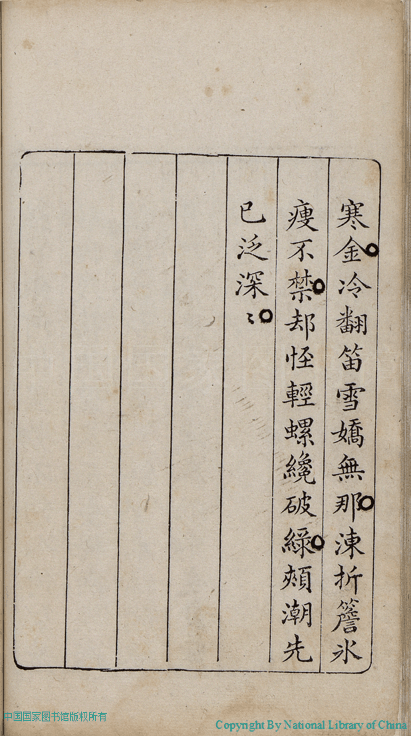 寒金冷翻笛雪嬌無那凍折簷氷
痩不禁却恠輕螺纔破緑頰潮先
已泛深〻
中国国家图书馆版权所有
Copyright By National Library of China